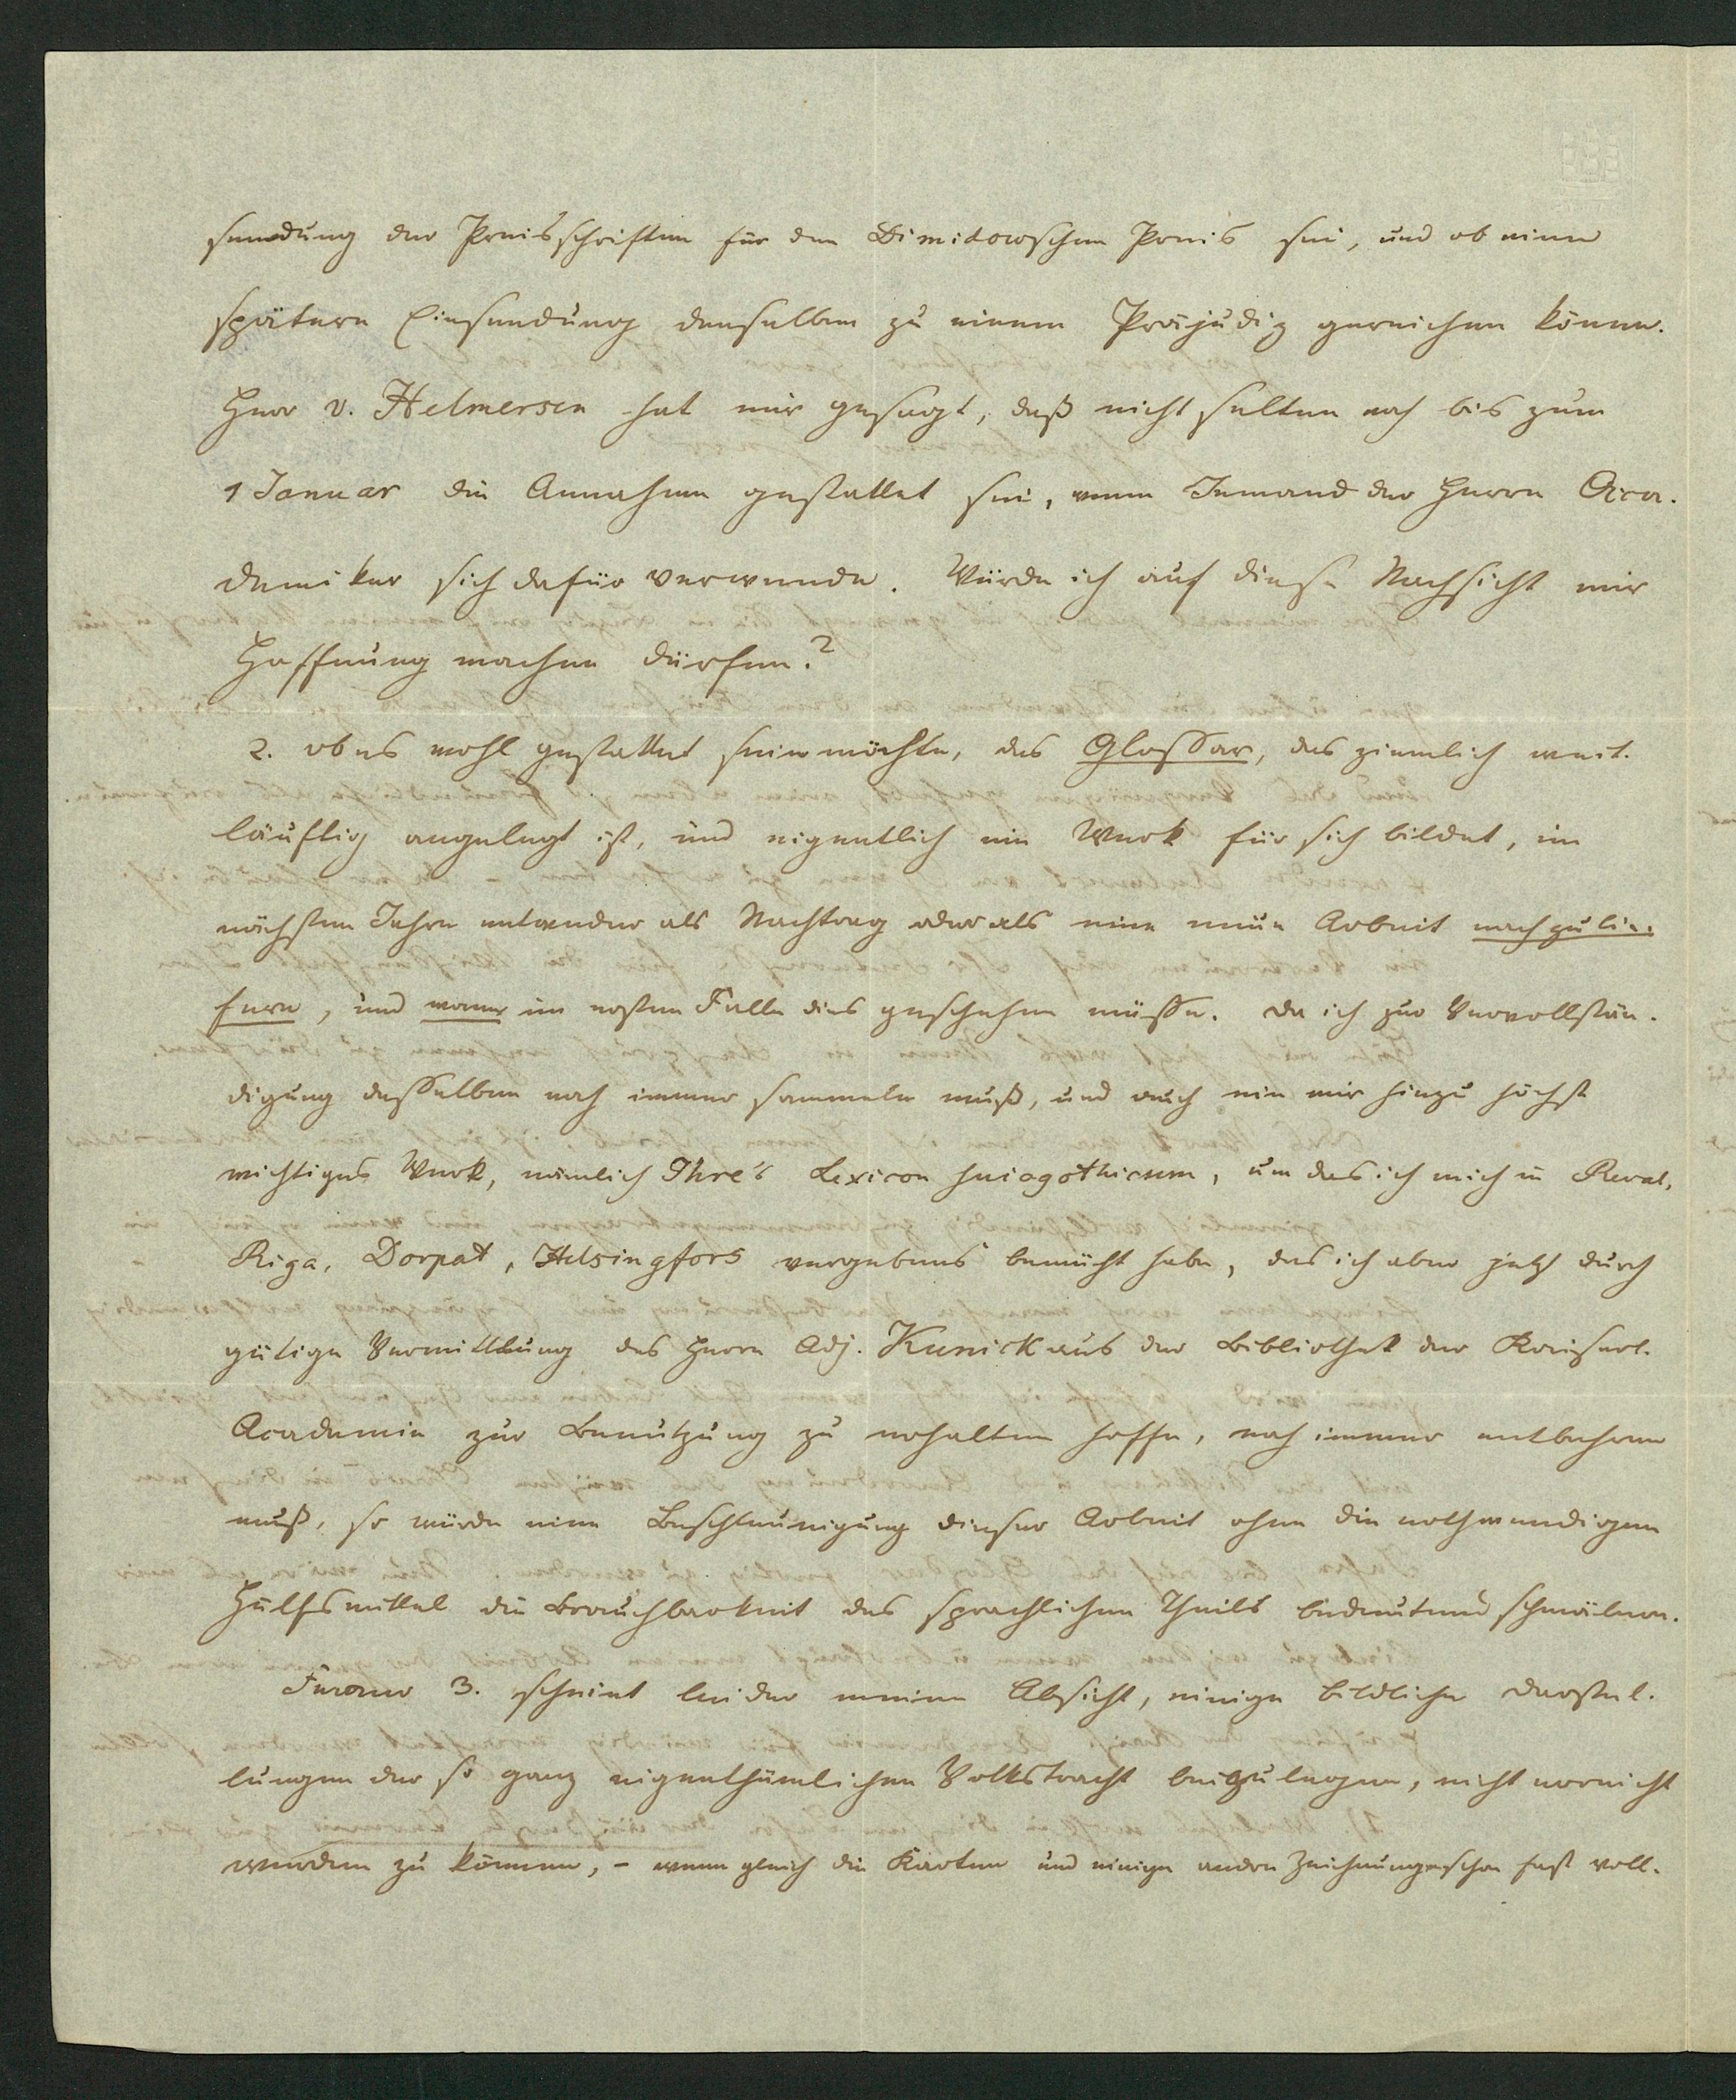 sendung der Preisschriften für den Dimidowschen Preis sei, und ob eine
spätere Einsendung denselben zu einem Präjudiz gereichen könne.
Herr v. Helmersen hat mir gesagt, daß nicht selten noch bis zum
1 Januar die Annahme gestattet sei, wenn Jemand der Herrn Aca-
demiker sich dafür verwende. Würde ich auf diese Nachsicht mir
Hoffnung machen dürfen?
2. ob es wohl gestattet sein möchte, das Glossar, das ziemlich weit-
läuftig angelegt ist, und eigentlich ein Werk für sich bildet, im
nächsten Jahre entweder als Nachtrag oder als eine neue Arbeit nachzulie-
fern, und wann im ersten Falle dies geschehen müsse. Da ich zur Vervollstän-
digung desselben noch immer sammeln muß, und auch ein mir hiezu höchst
wichtiges Werk, nämlich Ihre's Lexicon suiogothicum, um das ich mich in Reval,
Riga, Dorpat, Helsingfors vergebens bemüht habe, das ich aber jetzt durch
gütige Vermittlung des Herrn Adj. Kunick aus der Bibliothek der Kaiserl.
Academie zur Benutzung zu erhalten hoffe, noch immer entbehren
muß, so würde eine Beschleunigung dieser Arbeit ohne die nothwendigen
Hülfsmittel die Brauchbarkeit des sprachlichen Theils bedeutend schmälern.
Ferner 3. scheint leider meine Absicht, einige bildliche Darstel-
lungen der so ganz eigenthümlichen Volkstracht beizulegen, nicht erreicht
werden zu können, - wenn gleich die Karten und einige andre Zeichnungen schon fast voll-